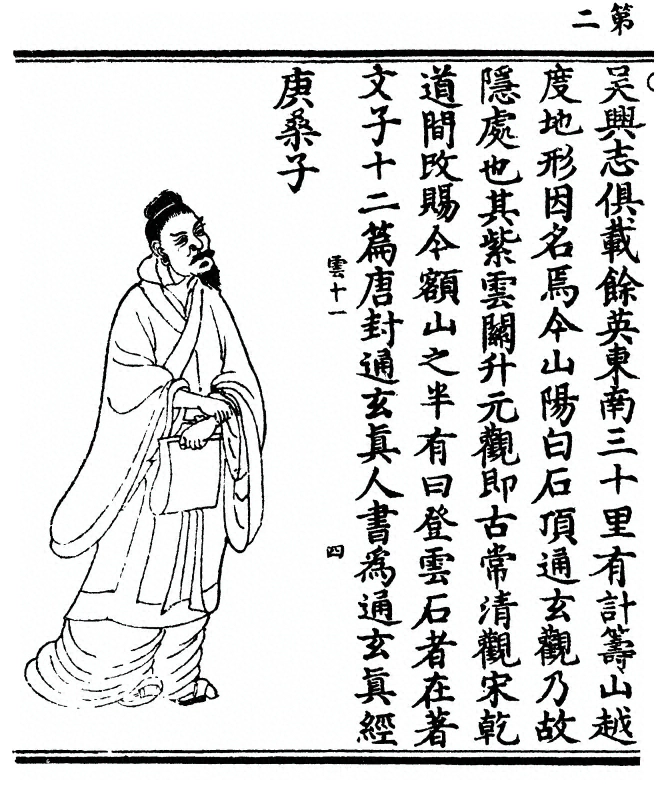 第二
吴興志俱載餘英東南三十里有計籌山越
度地形因名焉今山陽白石頂通玄觀乃故
隱處也其紫雲關升元觀即古常清觀宋乾
道間改賜今額山之半有曰登雲石者在著
文子十二篇唐封通玄真人書為通玄真經
雲十一
四
庚桑子